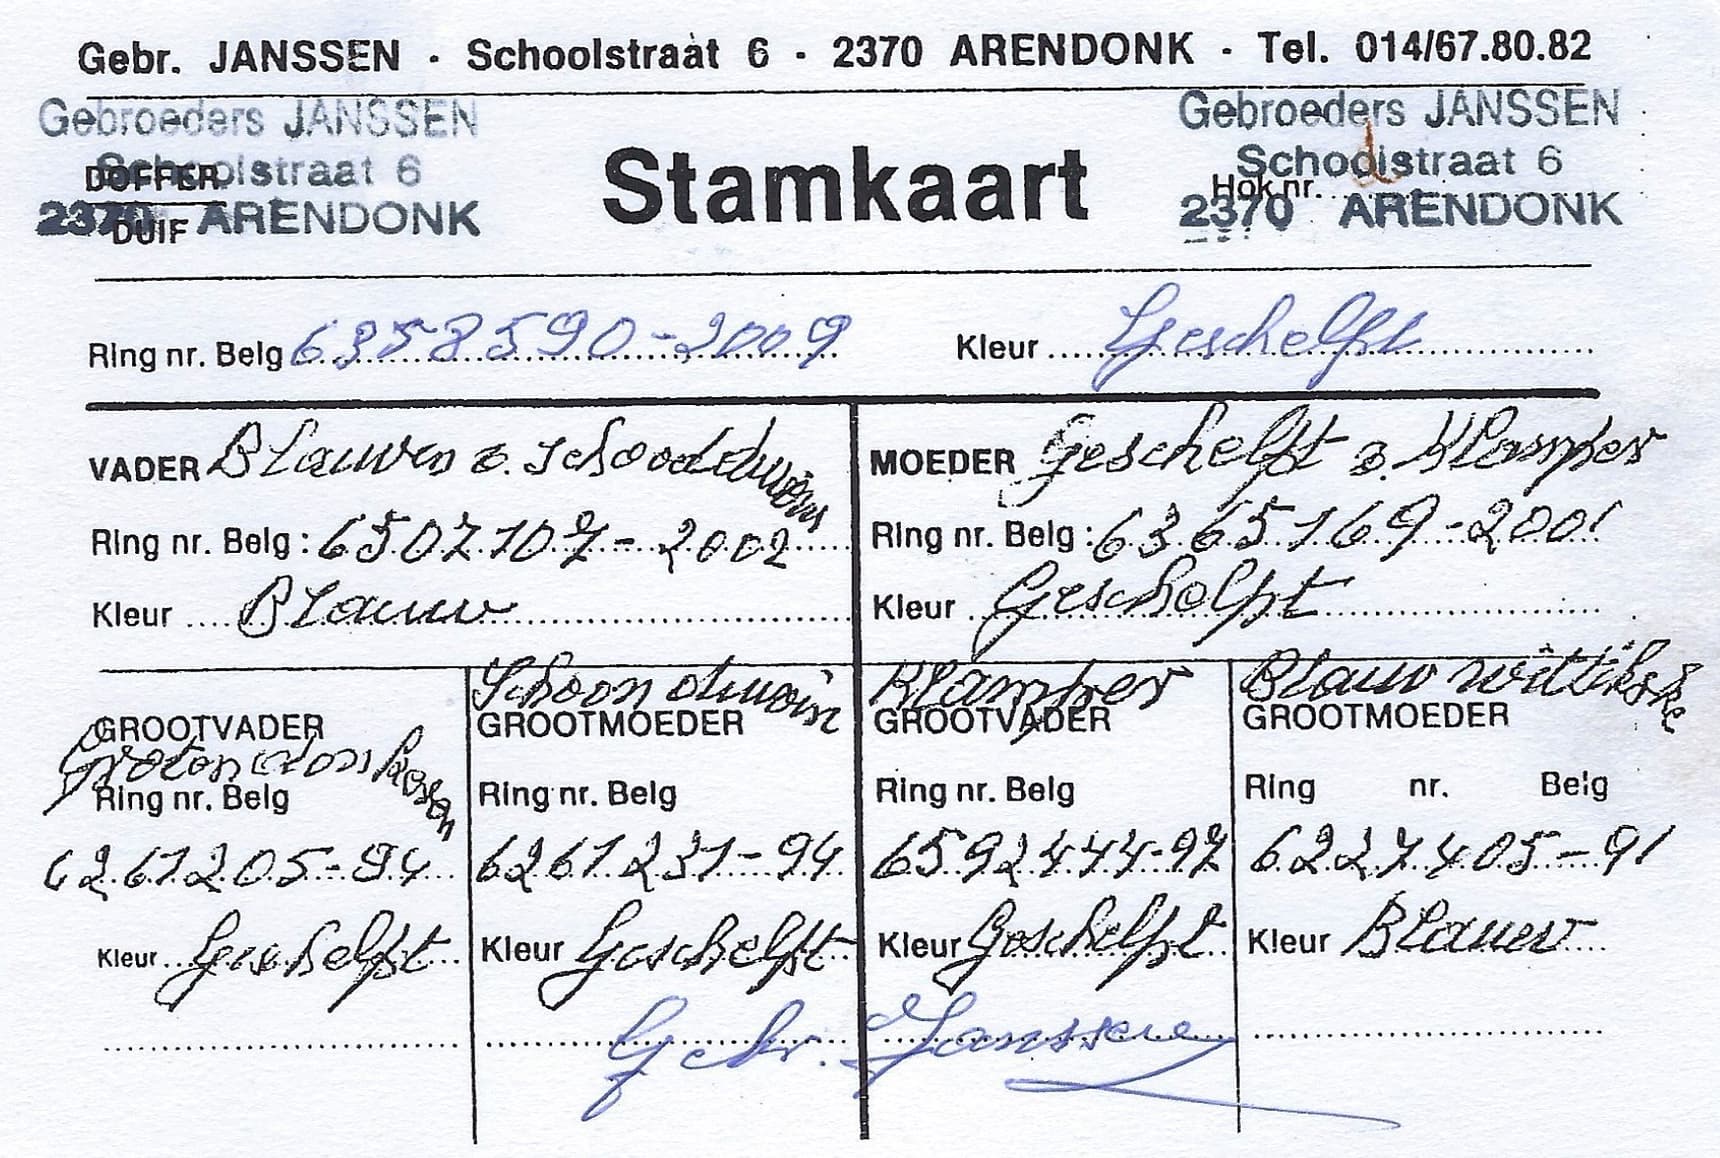 Gebr. JANSSEN - Schoolstraat 6 - 2370 ARENDONK - Tel. 014/67.80.82
Gebroeders JANSSEN
Schoolstraat 6
2370 ARENDONK
DOFFER
DUIF
Stamkaart
Gebroeders JANSSEN
Schoolstraat 6
2370 ARENDONK
Hok nr.
Ring nr. Belg 6358590-2009 Kleur Geschelft
VADER Blauwen v. schoonduivin
Ring nr. Belg: 6507107-2002
Kleur Blauw
MOEDER Geschelft v. Klamper
Ring nr. Belg: 6365169-2001
Kleur Geschelft
GROOTVADER
Ring nr. Belg
6261205-94
Kleur Geschelft
Schoon duivin
GROOTMOEDER
Ring nr. Belg
6261231-94
Kleur Geschelft
Klamper
GROOTVADER
Ring nr. Belg
6592444-97
Kleur Geschelft
Blauw wittikske
GROOTMOEDER
Ring nr. Belg
6227405-91
Kleur Blauw
Gebr. Janssen